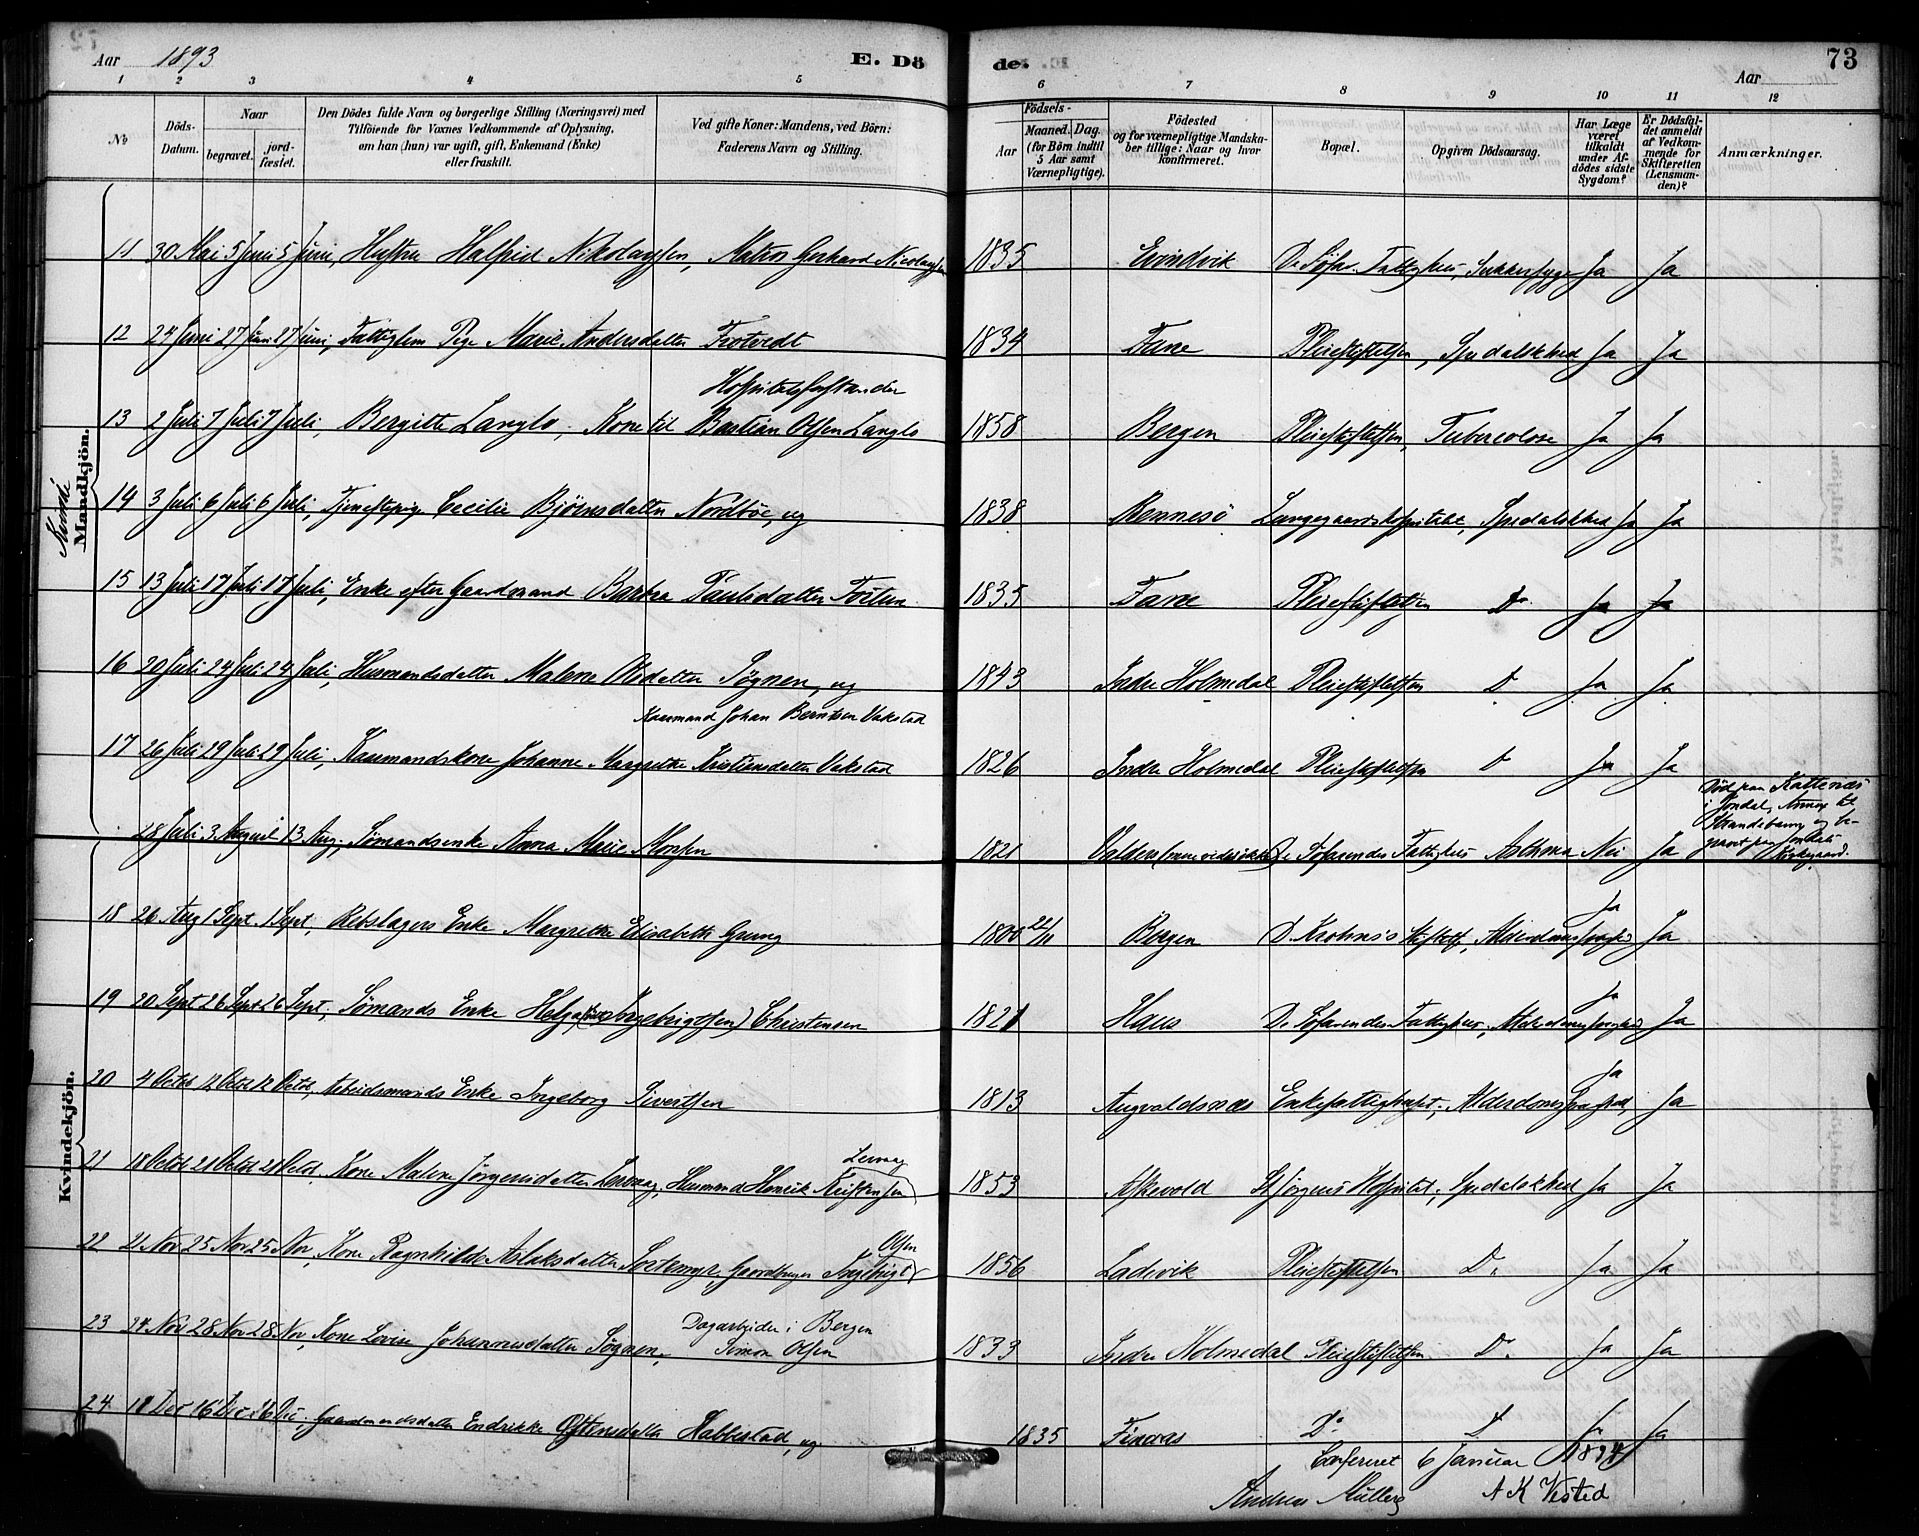 Aar 1893
E. Dö
de.
73
Aar
1 2 3 4 5 6 7 8 9 10 11 12
No
Döds-Datum.
Naar
begravet. jordfæstet.
Den Dödes fulde Navn og borgerlige Stilling (Næringsvei) med
Tilföiende for Voxnes Vedkommende af Oplysning,
om han (hun) var ugift, gift, Enkemand (Enke)
eller fraskilt.
Ved gifte Koner: Mandens, ved Börn:
Faderens Navn og Stilling.
Födsels-
Aar Maaned. Dag.
(for Börn indtil
5 Aar samt
Værnepligtige).
Födested
og for værnepligtige Mandskaber tillige: Naar og hvor
konfirmeret.
Bopæl.
Opgiven Dödsaarsag.
Har Læge
været
tilkaldt
under Afdödes sidste
Sygdom?
Er Dödsfaldet anmeldt
af Vedkommende for
Skifteretten
(Lensmanden)?
Anmærkninger.
Mandkjön.
11 30 Mai 5 Juni 5 Juni, Hustru Halfrid Nikolaysen, Matros Gerhard Nicolaysen 1835 Evindvik D. Søfar. Fattighus, Sukkersyge Ja Ja
12 24 Juni 27 Juni 27 Juni, Fattiglem Pige Marie Andersdatter Trotvedt 1834 Fane Pleiestiftelsen, Spedalskhed Ja Ja
Hospitalsforstander
13 2 Juli 7 Juli 7 Juli, Bergitte Langlo, Kone til Bastian Olsen Langlo 1858 Bergen Pleiestiftelsen, Tuberculose Ja Ja
14 3 Juli 6 Juli 6 Juli, Tjenestepige Cecilie Bjørnsdatter Nordbøe, ug 1838 Rennesö Lungegaardshospitalet, Spedalskhed Ja Ja
15 13 Juli 17 Juli 17 Juli, Enke efter Gaardmand Barbra Paulsdatter 1835 Fane Pleiestiftelsen Do Ja Ja
16 20 Juli 24 Juli 24 Juli, Husmandsdatter Malene Olsdatter Sögnen, ug 1843 Indre Holmedal Pleiestiftelsen D Ja Ja
Johan Berntsen Vakstad
17 26 Juli 29 Juli 29 Juli, Johanne Margrethe Kristiansdatter Vakstad 1826 Indre Holmedal Pleiestiftelsen D Ja Ja
28 Juli 3 August 13 Aug., Sømandsenke Anna Marie Monsen 1821 Valders De Søfarendes Fattighus Asthma Nei Ja
Død paa Kattenæs
i Jondal, Annex til
Strandebarm og begravet paa Jondals
Kirkegaard.
Kvindekjön.
18 26 Aug 1 Sept. 1 Sept, Rebslagers Enke Margrethe Elisabeth Grung 1800 22/11 Bergen D. Krohns Stiftelse, Alderdomssvaghed Ja Ja
19 20 Sept 26 Sept 26 Sept, Sømands Enke Helga Ingebrigtsen) Christensen 1821 Haus De Søfarendes Fattighus, Alderdomssvaghed Ja Ja
20 4 Octob 12 Octob 12 Octob, Arbeidsmands Enke Ingeborg Sivertsen 1813 Augvaldsnæs Enkefattighuset, Alderdomssvaghed, Ja Ja
21 18 Octob 21 Octob 21 Octob, Kone Malene Jørgensdatter Lervaag, Husmand Henrik Kristensen Lervag 1853 Askevold St Jørgens Hospital, Spedalskhed Ja Ja
22 21 Nov 25 Nov 25 Nov, Kone Ragnhilde Aslaksdatter Sortemyr, Gaardbruger Ingebrigt Olsen 1856 Ladevik Pleiestiftelsen Do Ja Ja
Dagarbeider i Bergen
23 24 Nov 28 Nov 28 Nov, Kone Lovise Johannesdatter Sögnen, Simon Olsen 1833 Indre Holmedal Pleiestiftelsen Do Ja Ja
24 11 Dec 16 Dec 16 Dec, Gaardmandsdatter Endrikke Østensdatter Habbestad, ug 1835 Finnaas Do D Ja Ja
Confereret 6 Januar 1894
Andreas Müller A K Vested